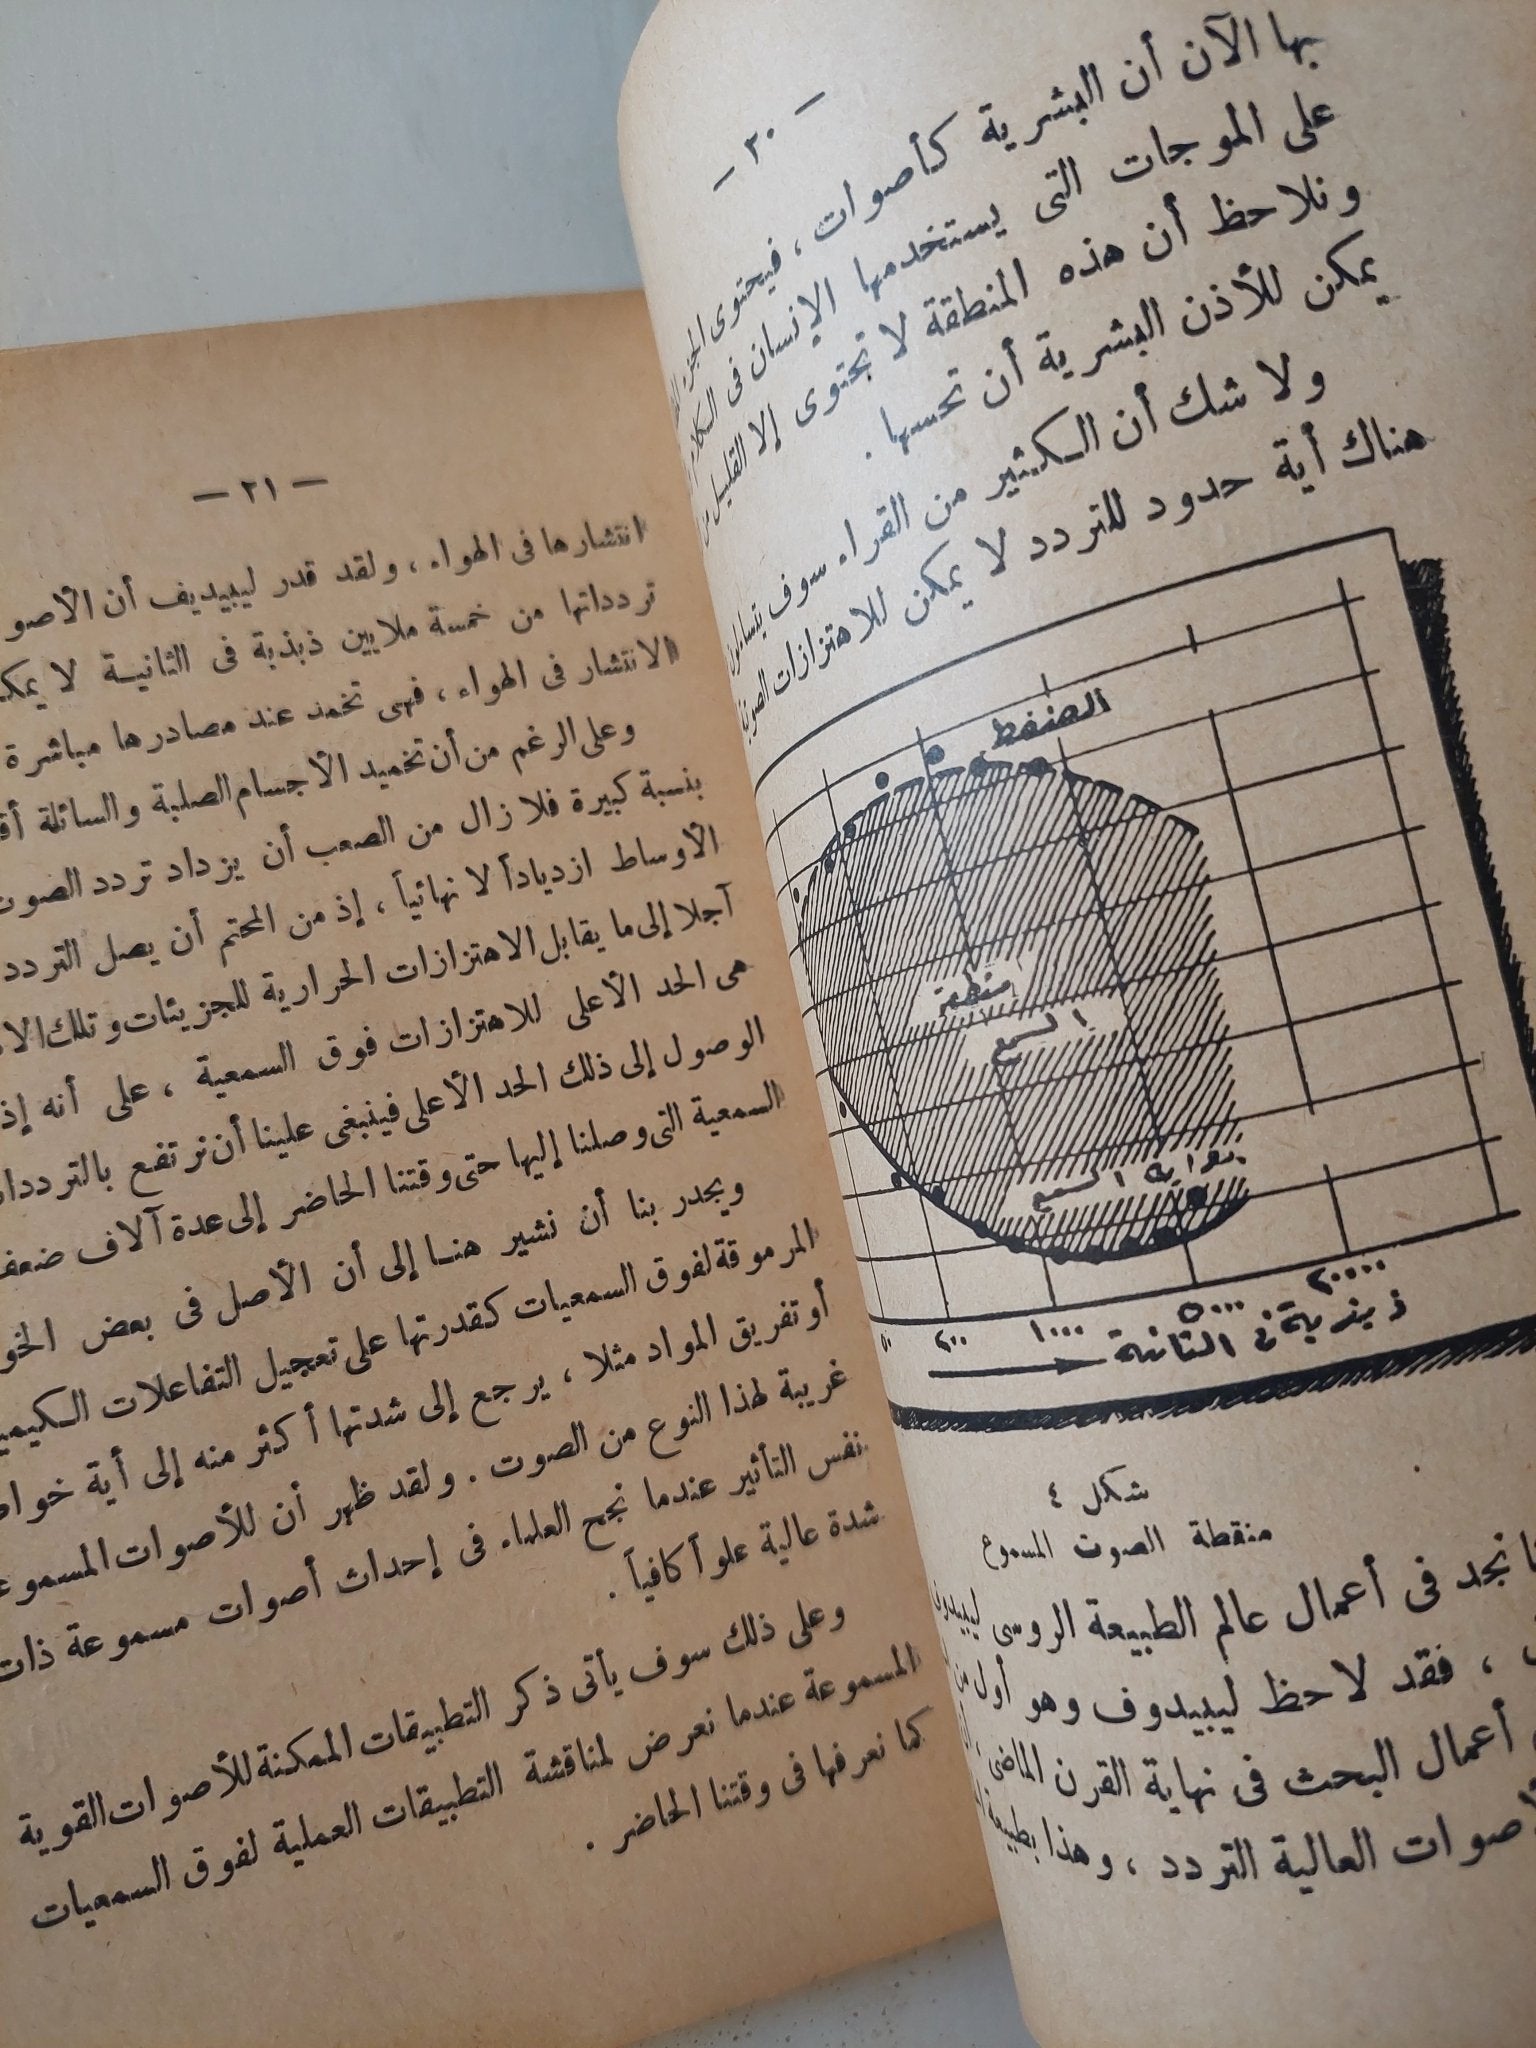 — ٢٠ —
بها الآن أن البشرية كأصوات ، فيحتوى
على الموجات التى يستخدمها الإنسان فى الكلام
ونلاحظ أن هذه المنطقة لا تحتوى إلا القليل من
يمكن للأذن البشرية أن تحسها .
ولا شك أن الكثير من القراء سوف يتساءلون
هناك أية حدود للتردد لا يمكن للاهتزازات
الضغط
منطقة
السمع
بداية السمع
٥٠ ٢٠٠ ١٠٠٠ ٥٠٠٠ ٢٠٠٠٠
ذبذبة فى الثانية
شكل ٤
منقطة الصوت المسموع
نجد فى أعمال عالم الطبيعة الروسى ليبيدوف
، فقد لاحظ ليبيدوف وهو أول من
أعمال البحث فى نهاية القرن الماضى ،
العالية التردد ، وهذا بطبيعة
— ٢١ —
انتشارها فى الهواء ، ولقد قدر ليبيديف أن
تردداتها من خمسة ملايين ذبذبة فى الثانية لا
الانتشار فى الهواء ، فهى تخمد عند مصادرها مباشرة
وعلى الرغم من أن تخميد الأجسام الصلبة والسائلة
بنسبة كبيرة فلا زال من الصعب أن يزداد تردد الصوت
الأوساط ازدياداً لا نهائياً ، إذ من المحتم أن يصل التردد
آجلا إلى ما يقابل الاهتزازات الحرارية للجزيئات وتلك
هى الحد الأعلى للاهتزازات فوق السمعية ، على أنه
الوصول إلى ذلك الحد الأعلى فينبغى علينا أن نرتفع
السمعية التى وصلنا إليها حتى وقتنا الحاضر إلى عدة آلاف
ويجدر بنا أن نشير هنا إلى أن الأصل فى بعض
المرموقة لفوق السمعيات كقدرتها على تعجيل التفاعلات
أو تفريق المواد مثلا ، يرجع إلى شدتها أكثر منه إلى أية
غريبة لهذا النوع من الصوت . ولقد ظهر أن للأصوات
نفس التأثير عندما نجح العلماء فى إحداث أصوات مسموعة ذات
شدة عالية علواً كافياً .
وعلى ذلك سوف يأتى ذكر التطبيقات الممكنة للأصوات القوية
المسموعة عندما نعرض لمناقشة التطبيقات العملية لفوق السمعيات
كما نعرفها فى وقتنا الحاضر .